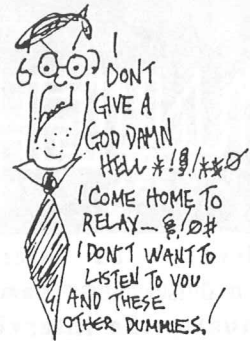 I
DONT
GIVE A
GOD DAMN
HELL *!§!**0
I COME HOME TO
RELAY__ §!0#
I DON'T WANT TO
LISTEN TO YOU
AND THESE
OTHER DUMMIES.!